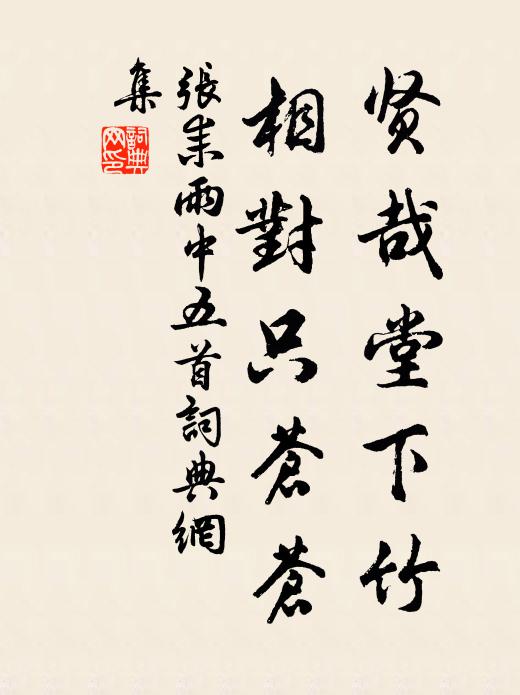 贤哉堂下竹
相對只蒼蒼
張耒雨中五首詞典網
集
詞典
网印